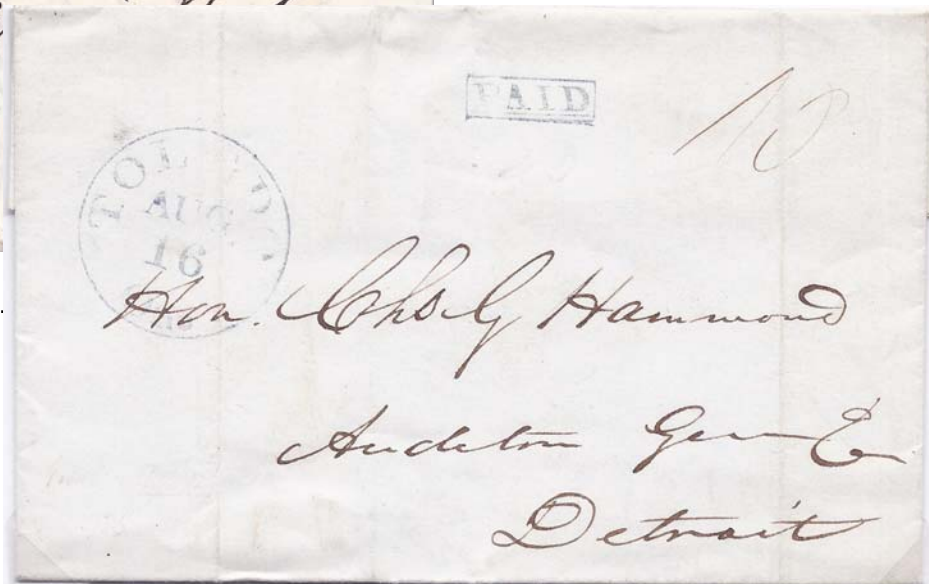 PAID
10
TOLEDO
AUG
16
Hon. Chs G Hammond
Auditor Gen E
Detroit